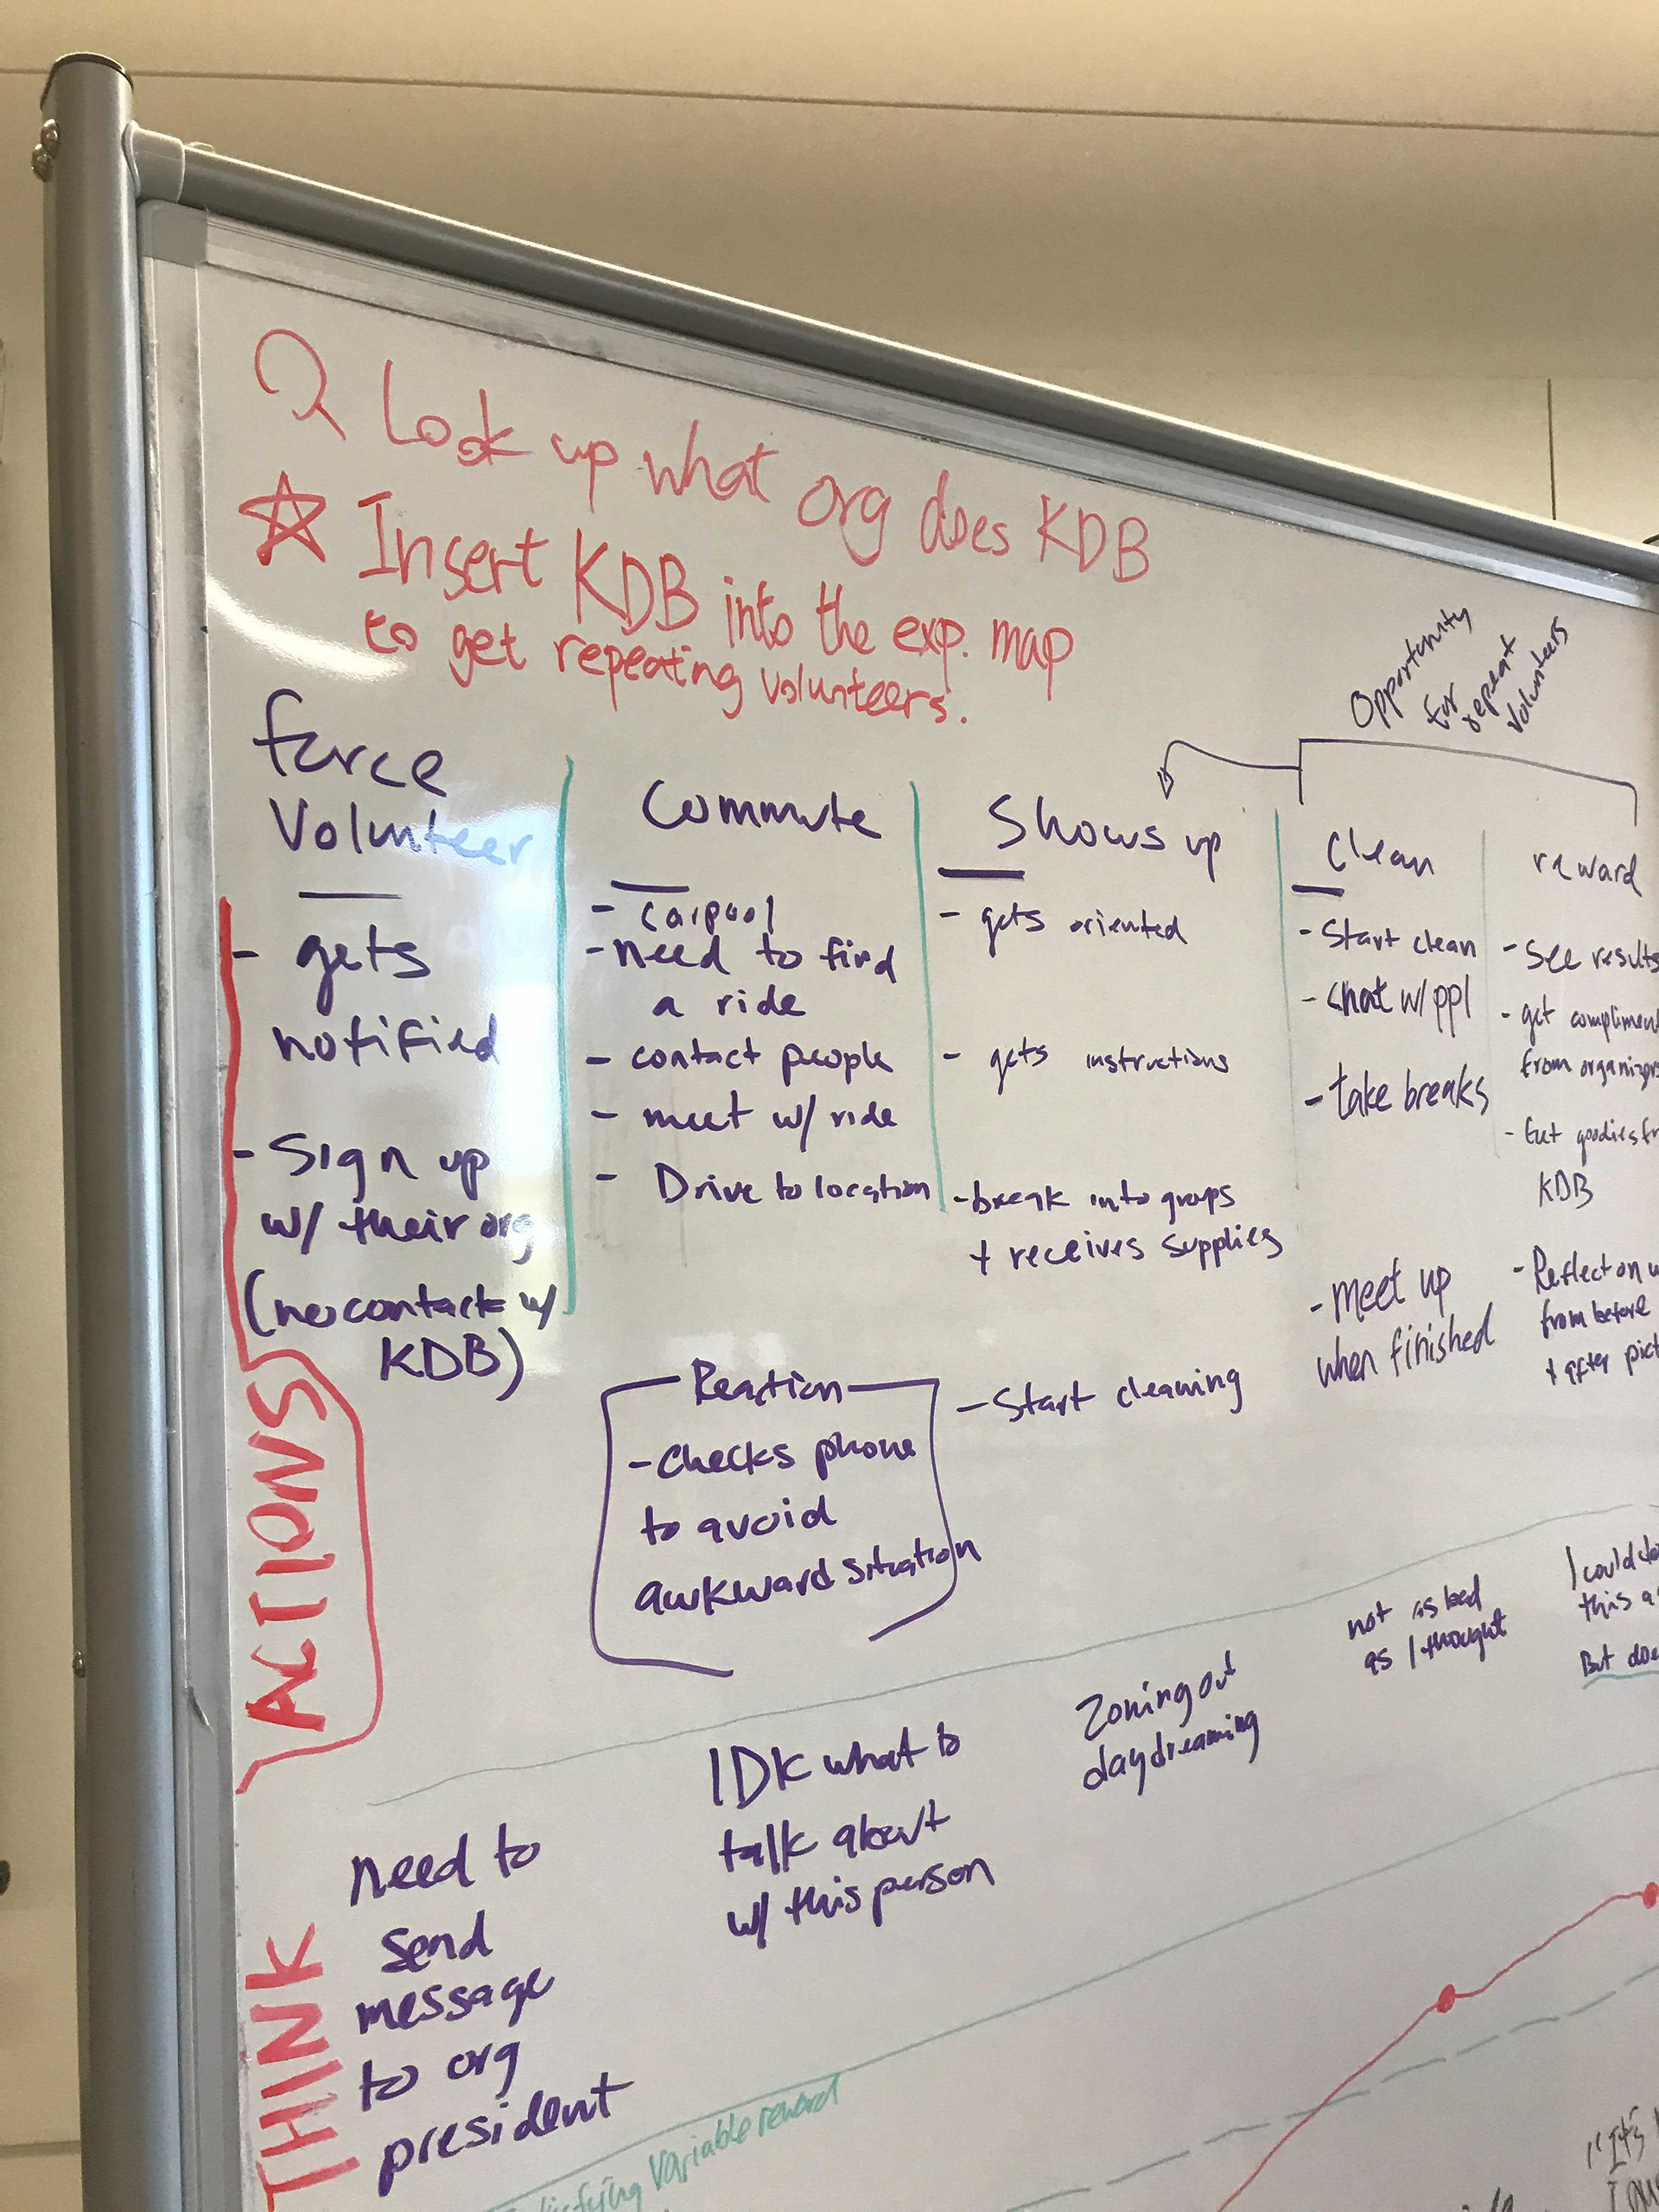 Look up what org does KDB
Insert KDB into the exp. map
to get repeating volunteers.
Opportunity
for
repeat
volunteers
force
Volunteer
- gets
notified
- Sign up
w/ their org
(no contact w/
KDB)
Commute
- Carpool
- need to find
a ride
- contact people
- meet w/ ride
- Drive to location
Reaction
- Checks phone
to avoid
awkward situation
Shows up
- gets oriented
- gets instructions
- break into groups
+ receives supplies
- Start cleaning
Clean
- Start clean
- chat w/ ppl
- take breaks
- meet up
when finished
reward
- See results
- get complimen
from organizers
- Get goodies fr
KDB
- Reflect on w
from before
+ after pict
ACTIONS
THINK
need to
send
message
to org
president
IDK what to
talk about
w/ this person
Zoning out
daydreaming
not as bad
as I thought
I could do
this a
But doe
Variable reward
"It's